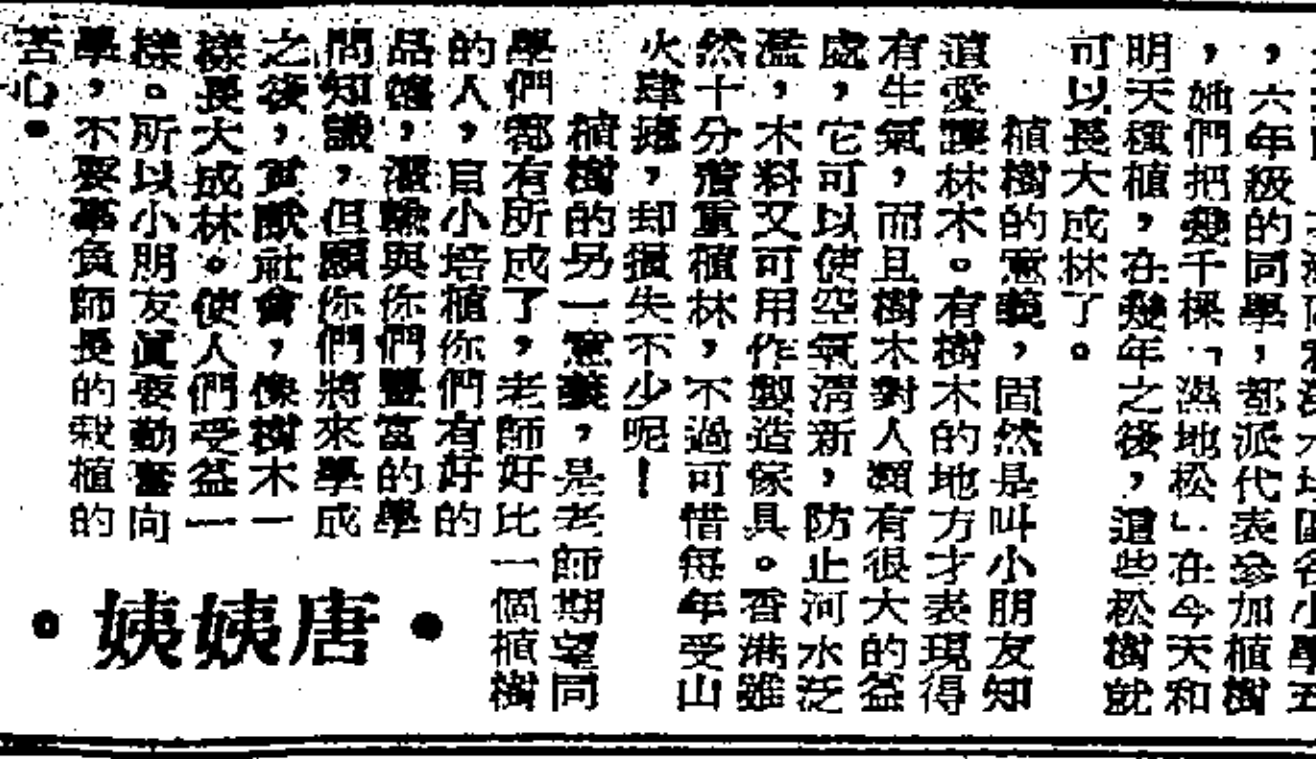 小學五
，六年級的同學，都派代表參加植樹
，她們把幾千棵「濕地松」在今天和
明天種植，在幾年之後，這些松樹就
可以長大成林了。
植樹的意義，固然是叫小朋友知
道愛護林木。有樹木的地方才表現得
有生氣，而且樹木對人類有很大的益
處，它可以使空氣清新，防止河水泛
濫，木料又可用作製造傢具。香港雖
然十分着重植林，不過可惜每年受山
火肆瘧，却損失不少呢！
植樹的另一意義，是老師期望同
學們都有所成了，老師好比一個植樹
的人，自小培植你們有好的
品德，灌輸與你們豐富的學
問知識，但願你們將來學成
之後，貢獻社會，像樹木一
樣長大成林。使人們受益一
樣。所以小朋友眞要勤奮向
學，不要辜負師長的栽植的
苦心。
•唐姨姨•